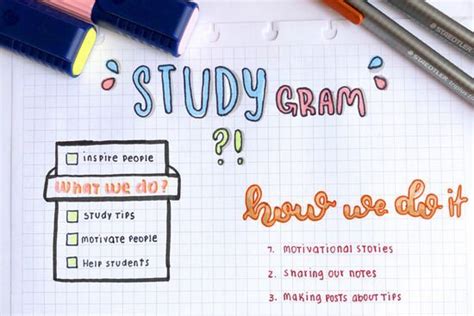 STUDY GRAM
?!
inspire people
What we do?
study tips
motivate people
Help students
how we do it
1. motivational stories
2. sharing our notes
3. making posts about tips
STAEDTLER
STAEDTLER